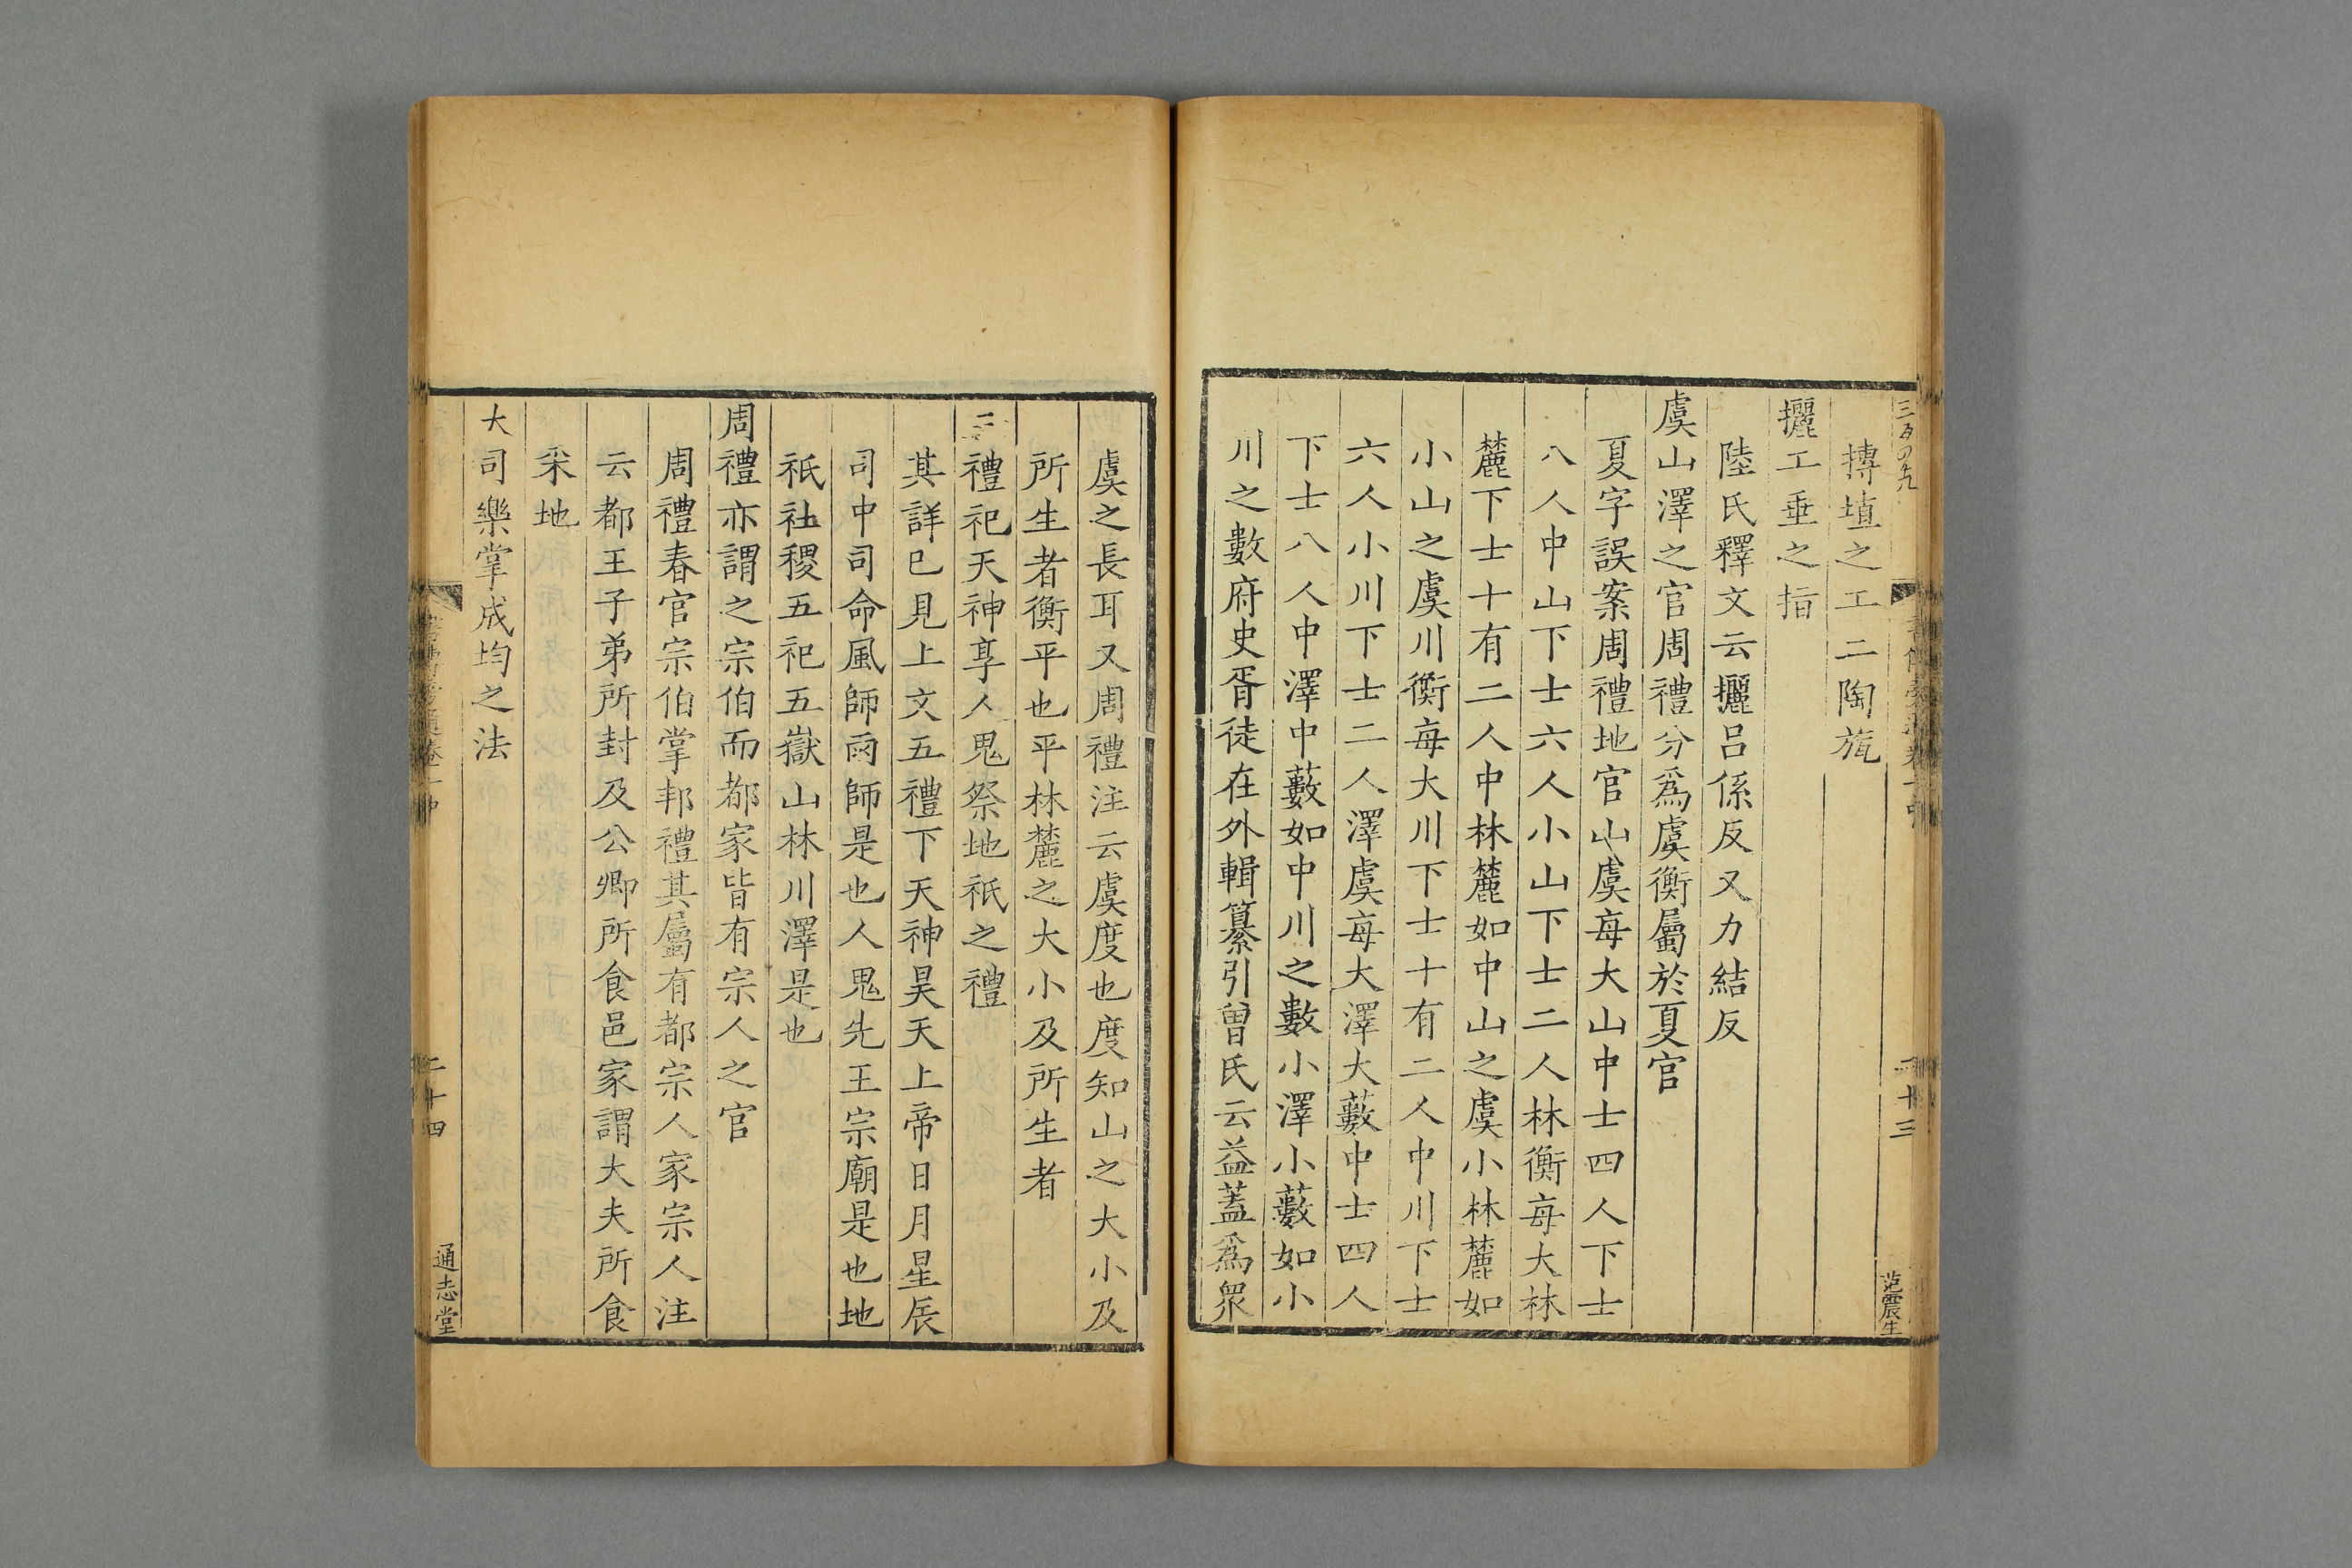 摶埴之工二陶旊
攦工垂之指
陸氏釋文云攦呂係反又力結反
虞山澤之官周禮分爲虞衡屬於夏官
夏字誤案周禮地官山虞每大山中士四人下士
八人中山下士六人小山下士二人林衡每大林
麓下士十有二人中林麓如中山之虞小林麓如
小山之虞川衡每大川下士十有二人中川下士
六人小川下士二人澤虞每大澤大藪中士四人
下士八人中澤中藪如中川之數小澤小藪如小
川之數府史胥徒在外輯纂引曾氏云益蓋爲衆
二十三
范震生
虞之長耳又周禮注云虞度也度知山之大小及
所生者衡平也平林麓之大小及所生者
三禮祀天神享人鬼祭地祇之禮
其詳已見上文五禮下天神昊天上帝日月星辰
司中司命風師雨師是也人鬼先王宗廟是也地
祇社稷五祀五嶽山林川澤是也
周禮亦謂之宗伯而都家皆有宗人之官
周禮春官宗伯掌邦禮其屬有都宗人家宗人注
云都王子弟所封及公卿所食邑家謂大夫所食
采地
大司樂掌成均之法
二十四
通志堂